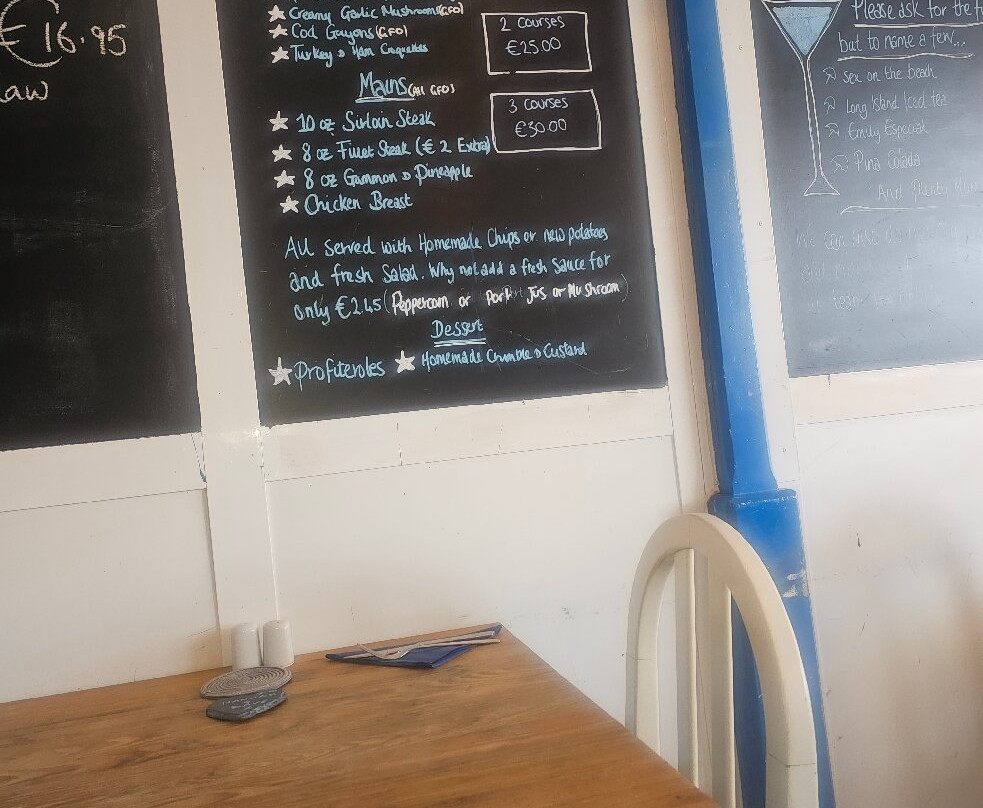 €16.95
aw
Creamy Garlic Mushrooms (GFO)
Cod Goujons (GFO)
Turkey & Ham Croquettes
2 courses
€25.00
3 courses
€30.00
Mains (All GFO)
10 oz Sirloin Steak
8 oz Fillet Steak (€2 Extra)
8 oz Gammon & Pineapple
Chicken Breast
All served with Homemade Chips or new potatoes
and fresh Salad. Why not add a fresh sauce for
only €2.45 (Peppercorn or Port Jus or Mushroom)
Dessert
Profiteroles Homemade Crumble & Custard
Please ask for the
but to name a few...
Sex on the beach
Long Island Iced tea
Emily Especial
Pina Colada
And Plenty More
We can